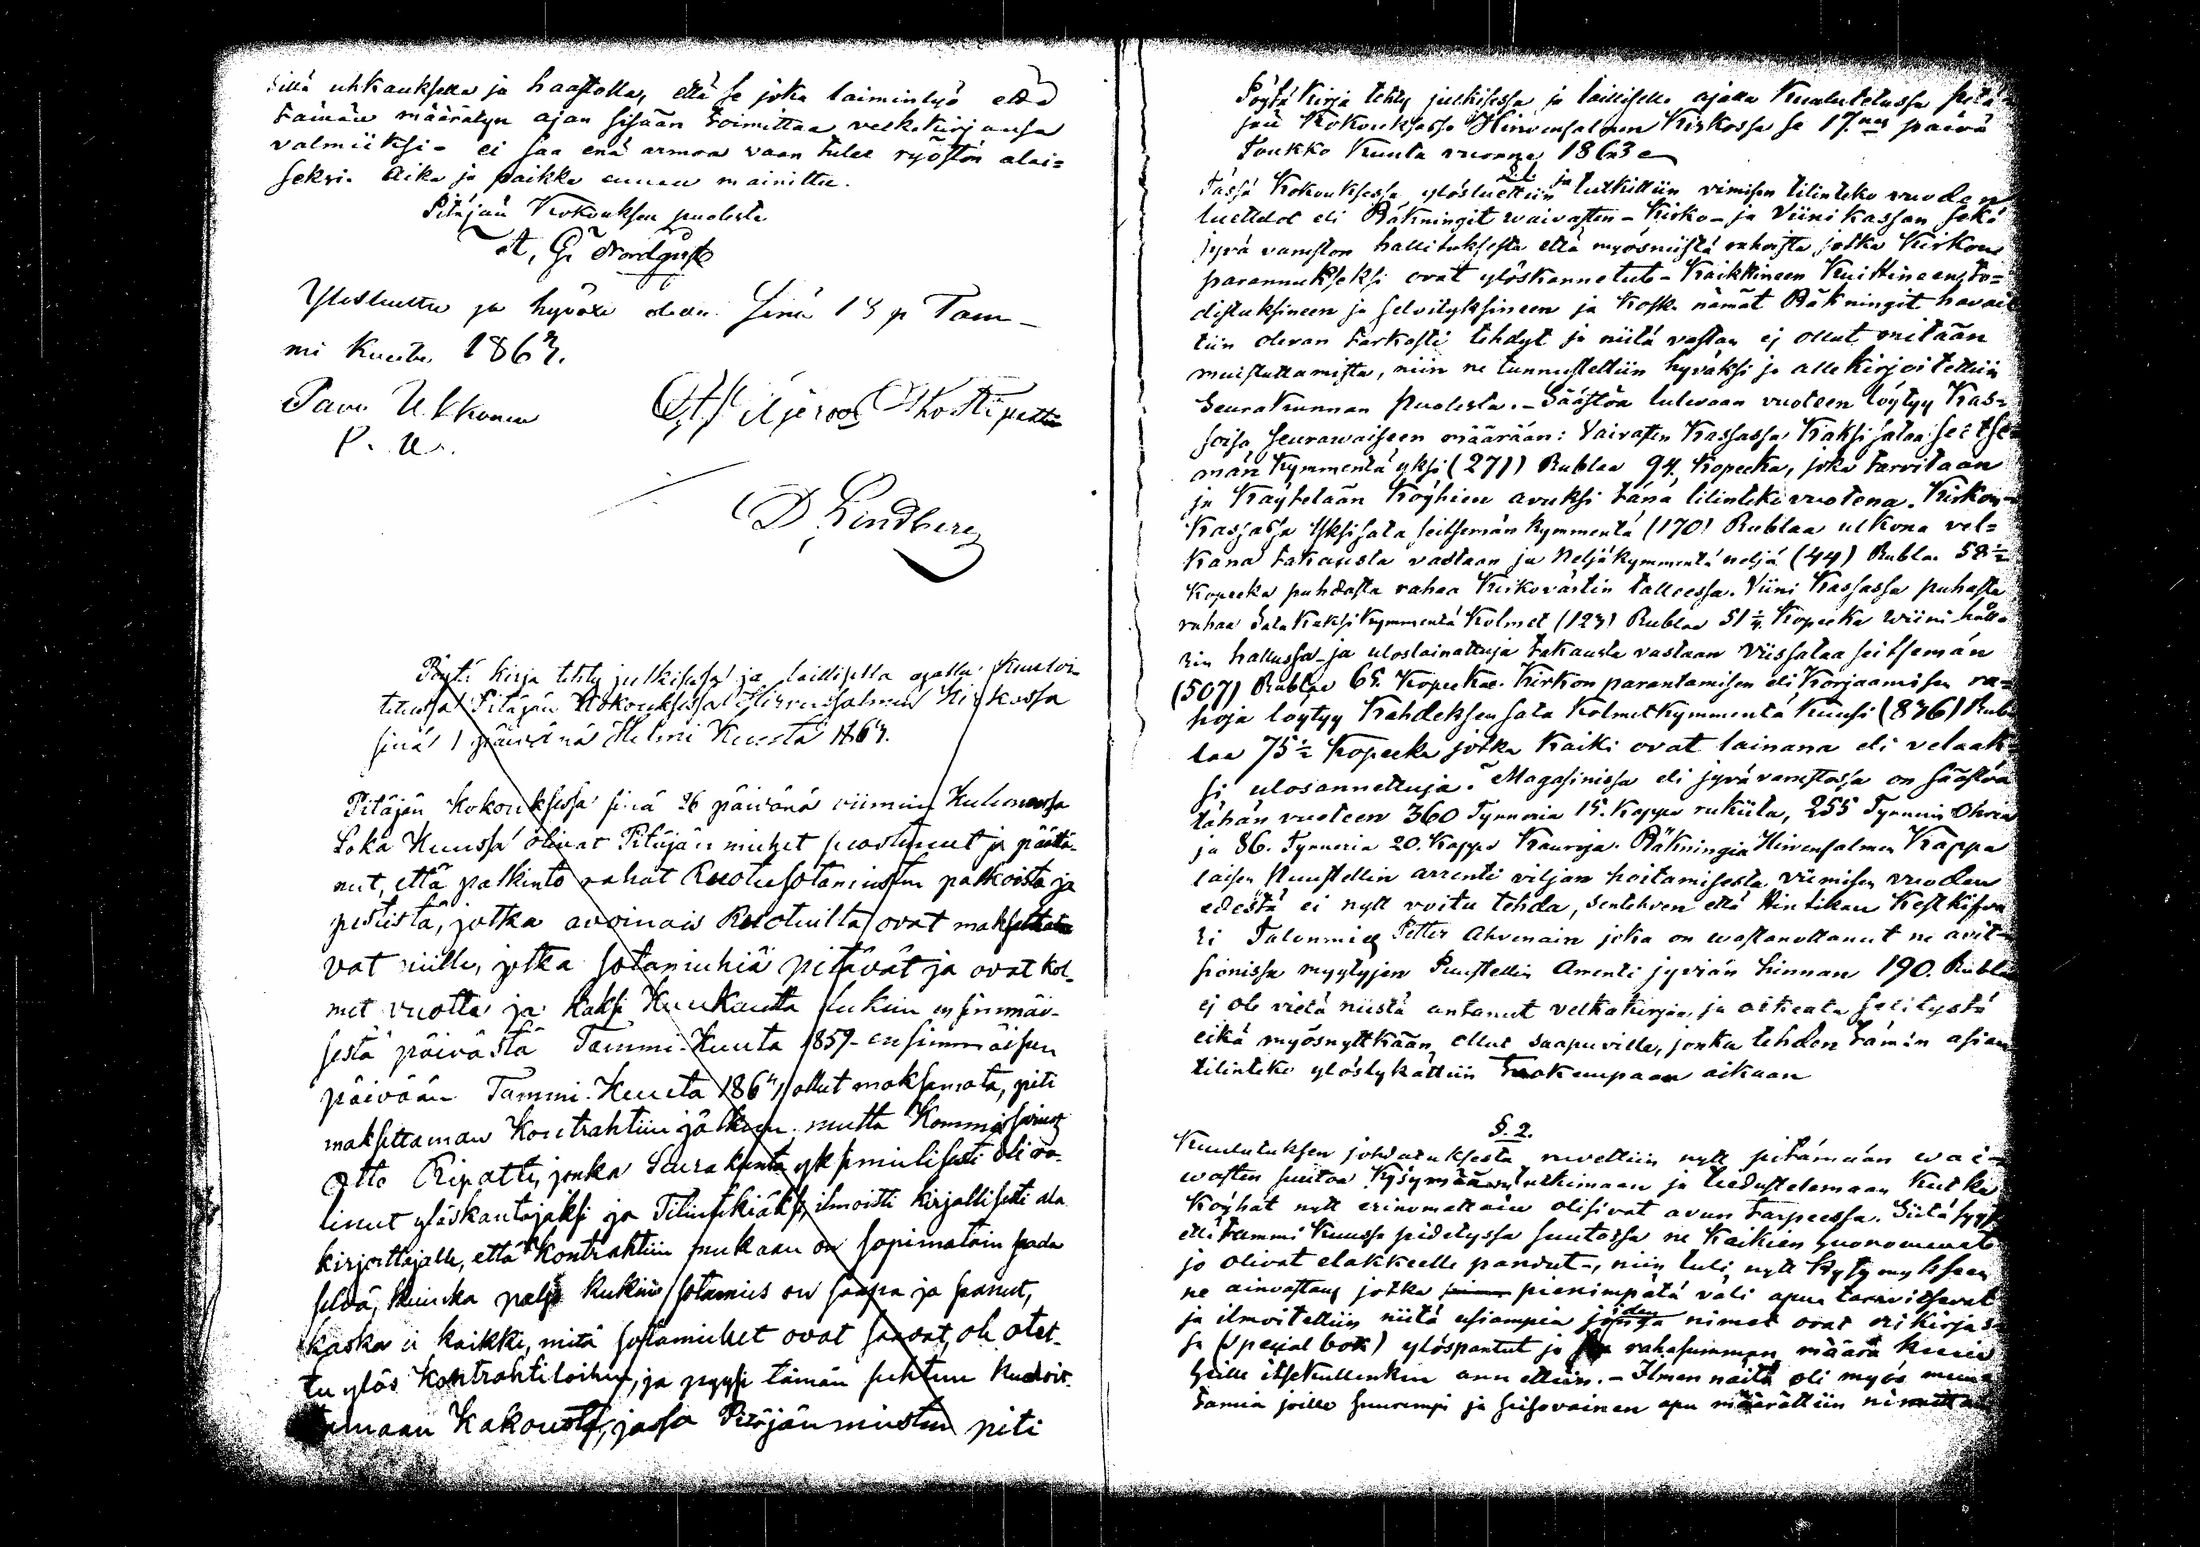 sillä uhkauksella ja haastolla, että se joka laiminlyö että
tämän määrätyn ajan sisään toimittaa velkakirjansa
valmiiksi - ei saa enä armoa vaan tulee ryöstön alai=
seksi. Aika ja paikka ennen mainittu.
Pitäjän Kokouksen puolesta
A. G. Nordqvist
Ylösluettu ja hyväxi sinä 18 p Tam-
mi Kuuta 1863.
Pavo Ukkonen
P. U.
D. Lindberg
Pöytä Kirja tehty julkisessa ja laillisella ajalla Kuului-
tetussa Pitäjän Kokouksessa Hirvensalmen Kirkossa
sinä 1 päivänä Helmi Kuuta 1863.
Pitäjän Kokouksessa sinä 26 päivänä viimein kuluneessa
Loka Kuussa olivat Pitäjän miehet suostuneet ja päättä-
neet, että palkinto rahat Ruotusotamiesten palkoista ja
pestistä, jotka avoinais Ruotuilta ovat maksettava
vat niille, jotka sotamiehiä pitävät ja ovat kol-
met vuotta ja kaksi Kuukautta lukein ensimmäi-
sestä päivästä Tammi-Kuuta 1859 - ensimmäisen
päivään Tammi-Kuuta 1863, ollut maksamata, piti
maksettaman Kontrahtiin jälkeen. mutta Kommissariuz
Otto Ripatti, jonka Seurakunta yksimielisesti oli va-
linut ylöskantajaksi ja Tilintekiäksi, ilmoitti kirjallisesti alla
kirjoittajalle, että Kontrahtiin mukaan on sopimatoin saada
selvä, kuinka paljo kukiin sotamies on saapa ja saanut,
koska ei kaikki, mitä sotamiehet ovat saavat, ole otet-
tu ylös Kontrahtiloihin, ja pyysi tämän suhteen kuuloit-
tamaan Kokousta, jossa Pitäjän miesten piti
Pöytä Kirja tehty julkisessa ja laillisella ajalla Kuulutetussa pitä=
jän Kokouksessa Hirvensalmen Kirkossa se 17.nes päivä
Toukko Kuuta vuonna 1863
§ 1.
Tässä Kokouksessa ylösluettiin ja tutkittiin viimisen tilinteko vuoden
luettelot eli Räkningit waivasten - Kirko - ja Viini kassan sekä
jyvä vaneston hallituksesta että myös niistä rahoista jotka Kirkon
parannukseksi ovat ylöskannetut - Kaikkineen Kuittineens, to=
distuksineen ja selvityksineen ja Koska nämät Räkningit havait
tiin olevan tarkasti tehdyt ja niitä vastan ej ollut mitään
muistuttamista, niin ne tunnustettiin hyväksi ja alle kirjoitettiin
Seurakunnan puolesta. - Säästöä tulevaan vuoteen löytyy Kas=
soisa seurawaiseen määrään: Vaivasten Kassassa Kaksisataa seitse=
män kymmentä yksi (271) Rublaa 94. Kopeeka, joka tarvitaan
ja Käytetään Köyhien avuksi tänä tilinteko vuotena. Kirkon
Kassassa Yksisata seitsemän kymmentä (170) Rublaa ulkona vel=
kana takausta vastaan ja Neljäkymmentä neljä (44) Rublaa 58 ½
Kopeeka puhdasta rahaa Kirkovärtin talleessa. Viini Kassassa puhasta
rahaa Sata Kaksikymmentä Kolmet (123) Rublaa 51 ¼ Kopeeka wiini hålla
rin hallussa - ja uloslainattuja takausta vastaan Viissataa seitsemän
(507) Rublaa 65. Kopeekaa. Kirkon parantamisen eli Korjaamisen ra=
hoja löytyy Kahdeksen sata Kolmetkymmentä Kuusi (836) Rub
laa 75 ½ Kopeeka jotka Kaiki ovat lainana eli velaak=
si ulosannettuja. Magasinissa eli jyvävanestossa on säästöä
tähän vuoteen 360 Tynneria 15. Kappa rukiita, 255 Tynneria Ohria
ja 86. Tynneria 20. Kappa Kauroja. Räkningia Hirvensalmen Kappa
laisen Puustellin arrenti viljan hoitamisesta viimisen vuoden
edestä ei nytt voitu tehdä, sentehven että Hintikan Kestkifva
ri Talonmies Petter Ahvenain joka on wastanottanut ne avit=
sionissa myytyjen Puustellin Arrenti jyväin hinnan 190. Rubla
ej ole vielä niistä antanut velkakirjaa ja oikeata selitystä
eikä myösnyttkään ollut saapuville, jonka tehden Tämän asian
tilinteko ylöslykättiin Tuokempaan aikaan
§. 2.
Kuulutuksen johdatuksesta ruvettiin nytt pitämään wai=
wasten suutoa Kysymään tutkimaan ja tiedustelemaan Kutka
Köyhät nytt erinomattain olisivat avun tarpeessa. Siitä syys
että tammi Kuussa pidetyssa suutossa ne Kaikkien huonommat
jo olivat elakkeelle pandut -, niin tuli nytt Kysymykseen
ne ainoastaan jotka pienimpätä väli apua tarvitsevat
ja ilmoitettiin niitä usiampia joiden nimet ovat eri kirjas=
sa (Special bok) ylöspantut ja rahasumman määrä kuin
heille itsekullenkin annettiin. - Ilman näitä oli myös muu
tamia joille suurempi ja seisovainen apu määrättiin nimittäin